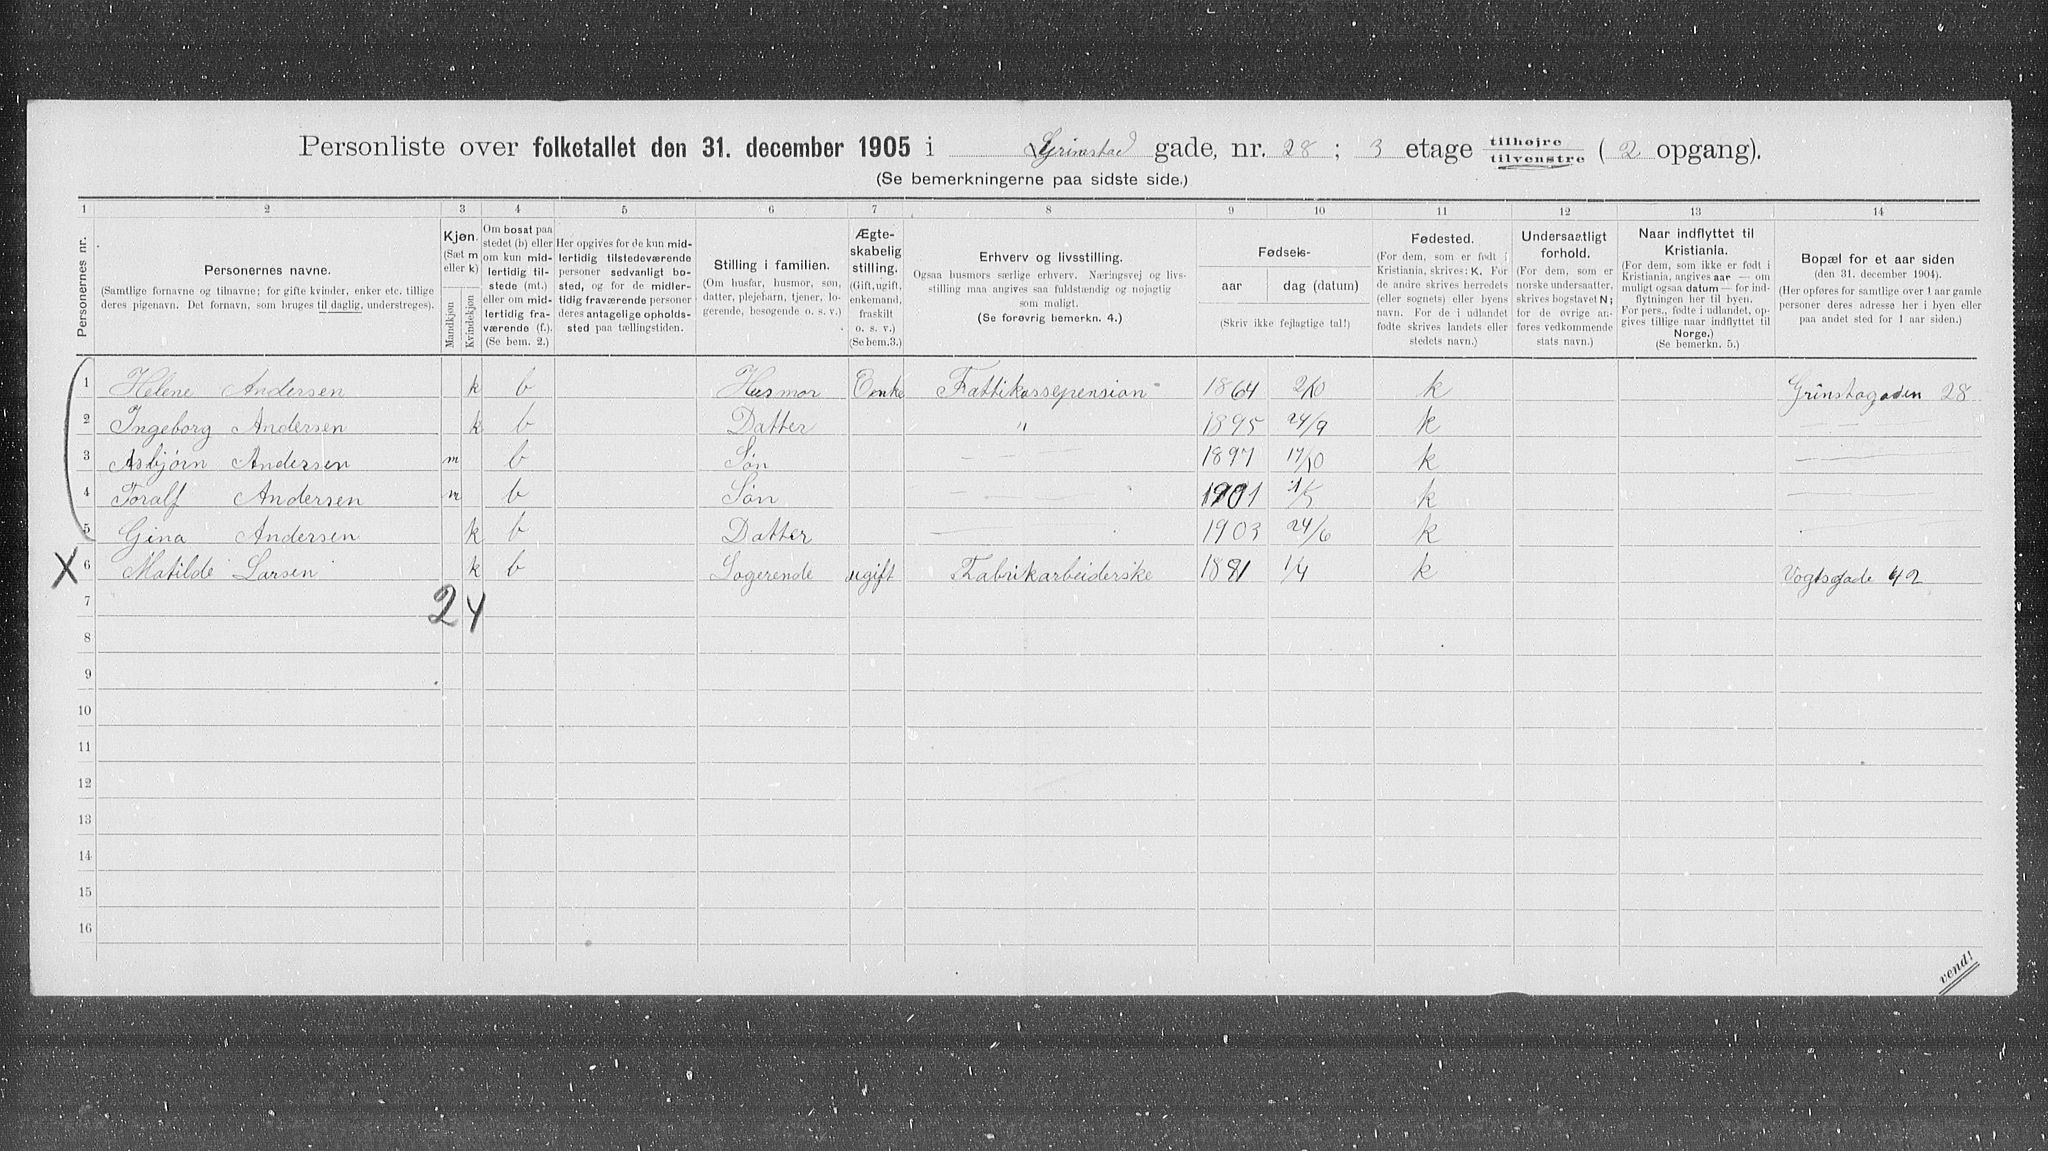 Personliste over folketallet den 31. december 1905 i Grimstad gade, nr. 28 ; 3 etage tilhøjre tilvenstre ( 2 opgang).
(Se bemerkningerne paa sidste side.)
1 2 3 4 5 6 7 8 9 10 11 12 13 14
Personernes nr.
Personernes navne.
(Samtlige fornavne og tilnavne; for gifte kvinder, enker etc. tillige
deres pigenavn. Det fornavn, som bruges til daglig, understreges).
Kjøn.
(Sæt m
eller k)
Mandkjøn
Kvindekjøn
Om bosat paa
stedet (b) eller
om kun mid-
lertidig til-
stede (mt.)
eller om mid-
lertidig fra-
værende (f.).
(Se bem. 2.)
Her opgives for de kun mid-
lertidig tilstedeværende
personer sedvanligt bo-
sted, og for de midler-
tidig fraværende personer
deres antagelige opholds-
sted paa tællingstiden.
Stilling i familien.
(Om husfar, husmor, søn,
datter, plejebarn, tjener, lo-
gerende, besøgende o. s. v.)
Ægte-
skabelig
stilling.
(Gift, ugift,
enkemand,
fraskilt
o. s. v.)
(Se bem.3.)
Erhverv og livsstilling.
Ogsaa husmors særlige erhverv. Næringsvej og livs-
stilling maa angives saa fuldstændig og nøjagtig
som muligt.
(Se forøvrig bemerkn. 4.)
Fødsels-
aar dag (datum)
(Skriv ikke fejlagtige tal!)
Fødested.
(For dem, som er født i
Kristiania, skrives: K. For
de andre skrives herredets
(eller sognets) eller byens
navn. For de i udlandet
fødte skrives landets eller
stedets navn.)
Undersaatligt
forhold.
(For norske
undersaatter,
skrives bogstavet N;
for de øvrige an-
føres vedkommende
stats navn.)
Naar indflyttet til
Kristiania.
(For dem, som ikke er født i
Kristiania, angives aar — om
muligt ogsaa datum — for ind-
flytningen her til byen.
For pers., født i udlandet, op-
gives tillige naar indflyttet til
Norge.)
(Se bemerkn. 5.)
Bopæl for et aar siden
(den 31. december 1904).
(Her opføres for samtlige over 1 aar gamle
personer deres adresse her i byen eller
paa andet sted for 1 aar siden.)
1 Helene Andersen k b Husmor Enke Fattikassepension 1864 2/10 k Grinstagaden 28
2 Ingeborg Andersen k b Datter " 1895 24/9 k
3 Asbjørn Andersen m b Søn 1897 17/10 k
4 Toralf Andersen m b Søn 1901 k
5 Gina Andersen k b Datter 1903 24/6 k
X 6 Matilde Larsen k b Logerende ugift Fabrikarbeiderske 1881 1/4 k Vogtsgade 42
7 2 4
8
9
10
11
12
13
14
15
16
vend!